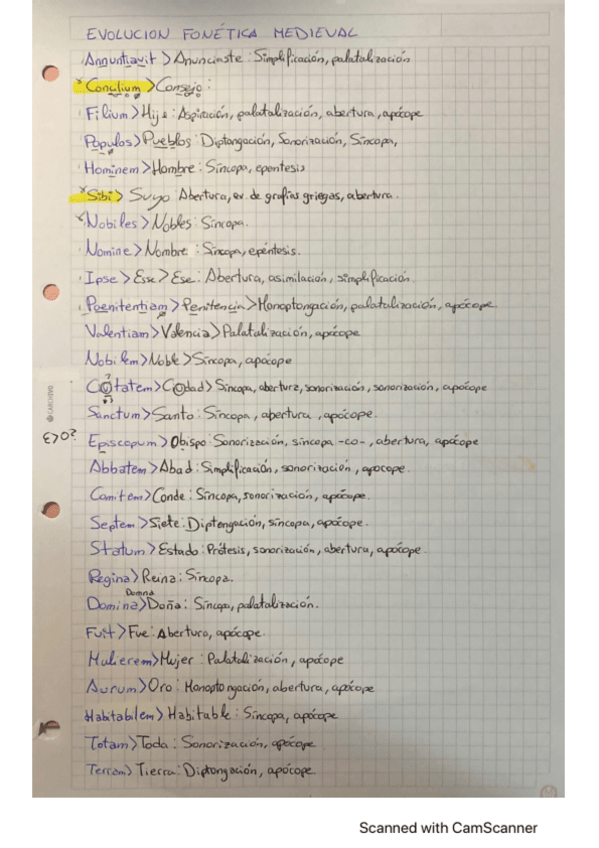 EVOLUCION FONÉTICA MEDIEVAL
Annuntiavit > Anunciaste: Simplificación, palatalización
Concilium > Consejo:
Filium > Hijo: Aspiración, palatalización, abertura, apócope
Populos > Pueblos: Diptongación, Sonorización, Síncopa,
Hominem > Hombre: Síncopa, epentesis
Sibi > Suyo: Abertura, ev. de grafías griegas, abertura.
Nobiles > Nobles: Síncopa.
Nomine > Nombre: Síncopa, epéntesis.
Ipse > Esse > Ese: Abertura, asimilación, simplificación.
Poenitentiam > Penitencia > Monoptongación, palatalización, apócope
Valentiam > Valencia > Palatalización, apócope
Nobilem > Noble > Síncopa, apócope
?
Ciutatem > Ciudad > Síncopa, abertura, sonorización, sonorización, apócope
Sanctum > Santo: Síncopa, abertura, apócope.
E>O? Episcopum > Obispo: Sonorización, síncopa -co-, abertura, apócope
Abbatem > Abad: Simplificación, sonorización, apócope.
Comitem > Conde: Síncopa, sonorización, apócope.
Septem > Siete: Diptongación, síncopa, apócope.
Statum > Estado: Prótesis, sonorización, abertura, apócope.
Regina > Reina: Síncopa.
Domna
Domina > Doña: Síncopa, palatalización.
Fuit > Fue: Abertura, apócope.
Mulierem > Mujer: Palatalización, apócope
Aurum > Oro: Monoptongación, abertura, apócope
Habitabilem > Habitable: Síncopa, apócope
Totam > Toda: Sonorización, apócope
Terram > Tierra: Diptongación, apócope
Scanned with CamScanner